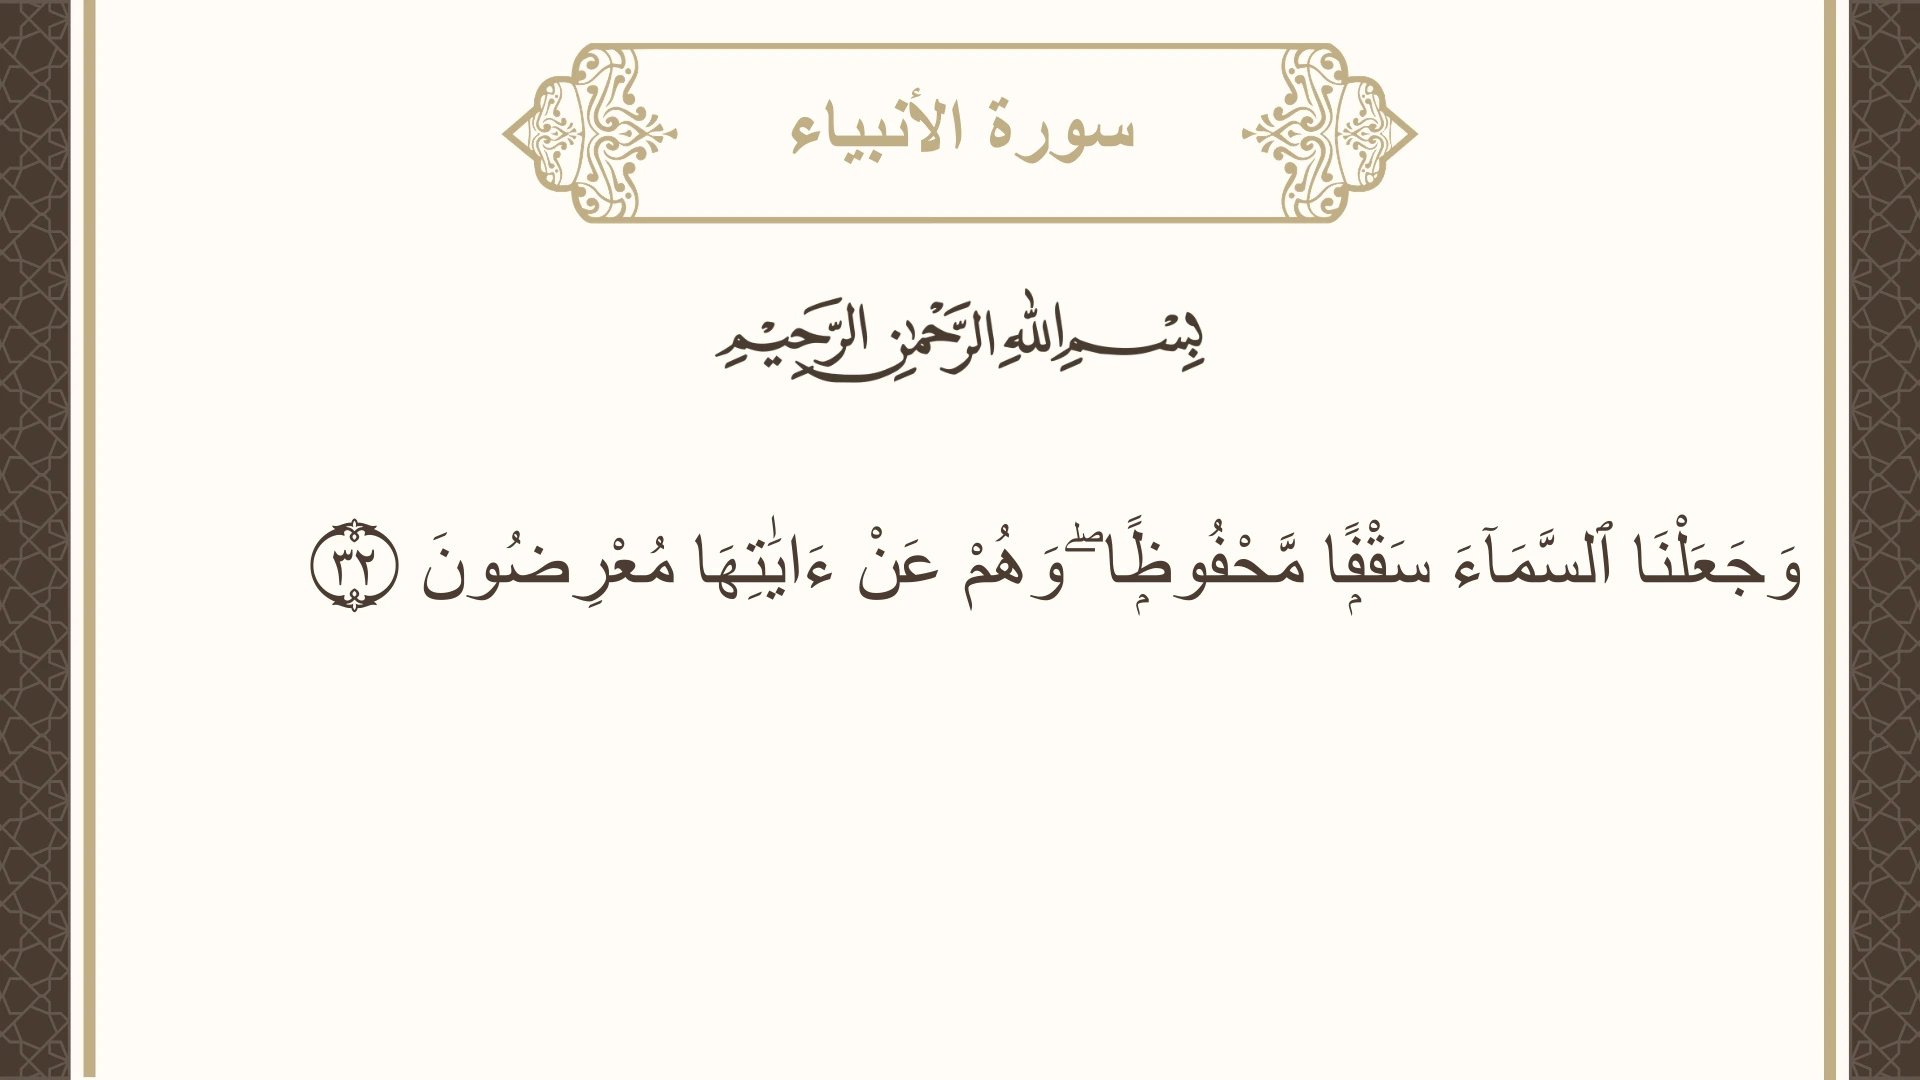 سورة الأنبياء
بِسْمِ اللهِ الرَّحْمٰنِ الرَّحِيْمِ
وَجَعَلْنَا ٱلسَّمَآءَ سَقْفًۭا مَّحْفُوظًۭا ۖ وَهُمْ عَنْ ءَايَـٰتِهَا مُعْرِضُونَ ٣٢